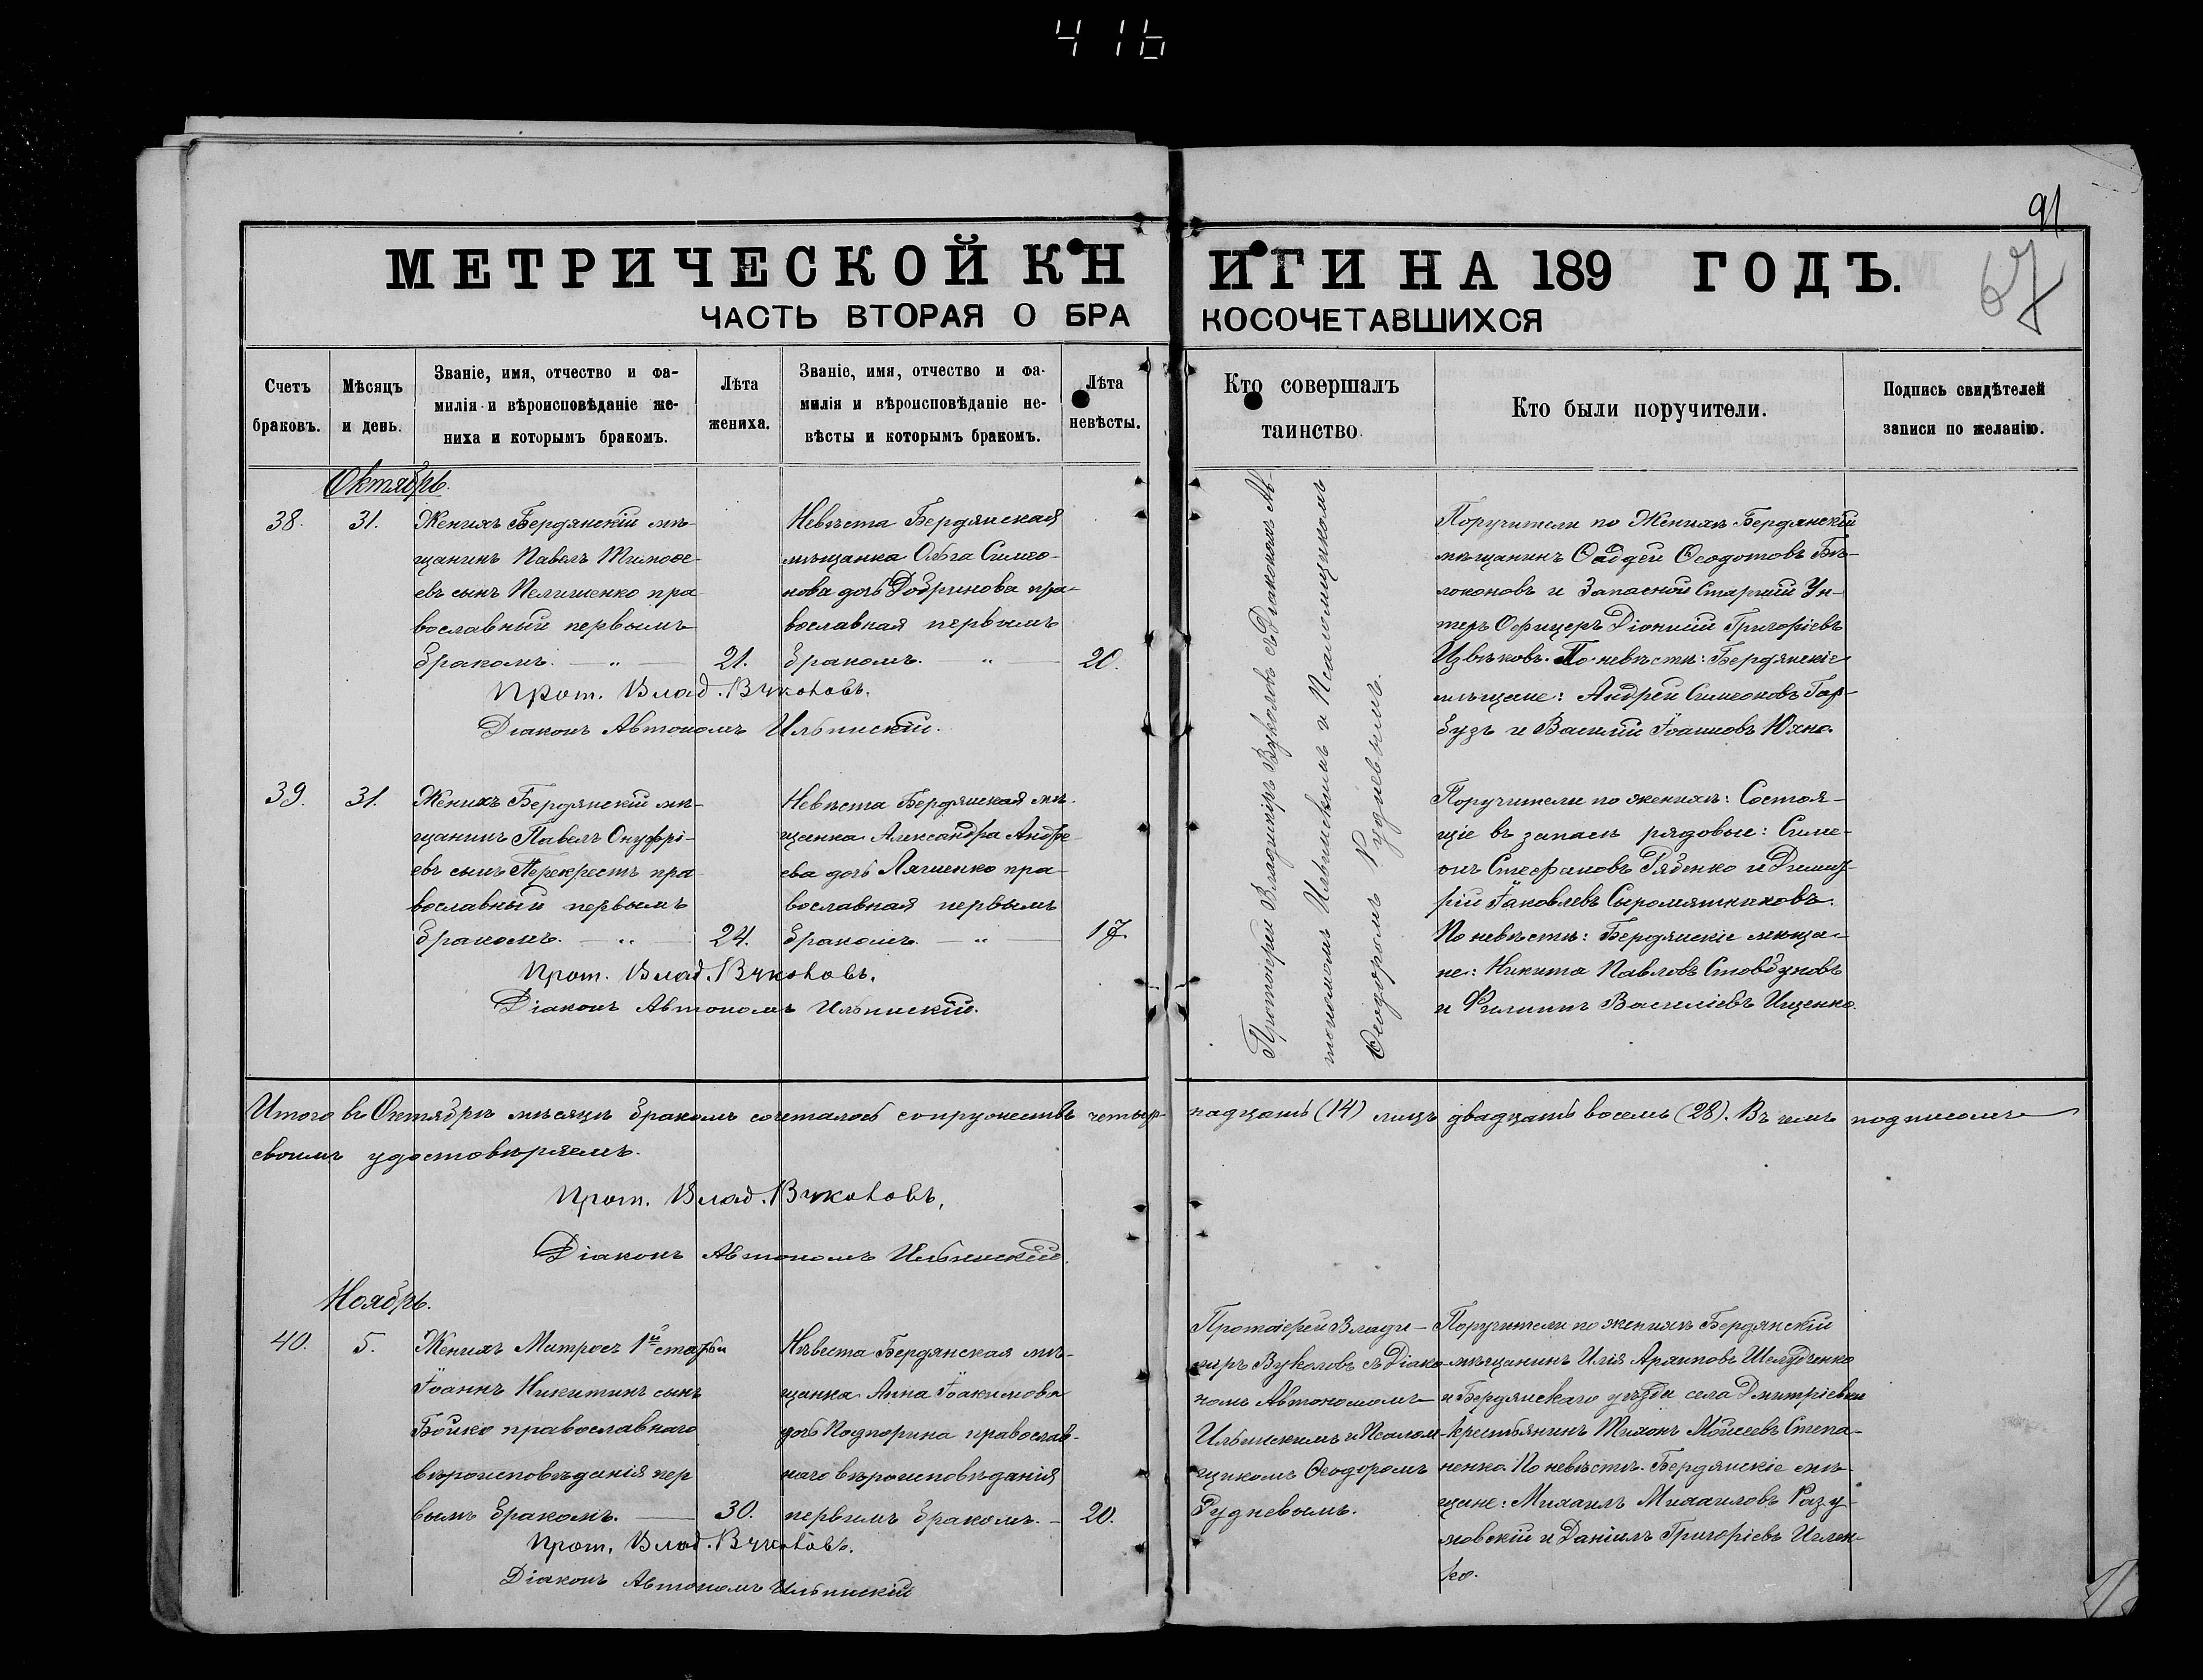 416
91
67
МЕТРИЧЕСКОЙ КНИГИ НА 189 ГОДЪ.
ЧАСТЬ ВТОРАЯ О БРАКОСОЧЕТАВШИХСЯ
Счетъ
браковъ.
Мѣсяцъ
и день.
Званіе, имя, отчество и фа-
милія и вѣроисповѣданіе же-
ниха и которымъ бракомъ.
Лѣта
жениха.
Званіе, имя, отчество и фа-
милія и вѣроисповѣданіе не-
вѣсты и которымъ бракомъ.
Лѣта
невѣсты.
Кто совершалъ
таинство.
Кто были поручители.
Подпись свидѣтелей
записи по желанію.
Октябрь.
38.
31.
Женихъ Бердянскій мѣ-
щанинъ Павелъ Тимофе-
евъ сынъ Пелишенко пра
вославный первымъ
бракомъ. — „ —
21.
Невѣста Бердянская
мѣщанка Ольга Симео-
нова дочь Добрынова пра-
вославная первымъ
бракомъ. „ —
20.
Прот. Влад. Вуколовъ.
Діаконъ Автономъ Ильинскій.
Протоіерей Владиміръ Вуколовъ съ Діакономъ Ав-
тономомъ Ильинскимъ и Псаломщикомъ
Ѳеодоромъ Рудневымъ.
Поручители по Женихѣ Бердянскій
мѣщанинъ Ѳаддей Ѳеодотовъ Бѣ-
локоновъ и Запасной Старшій Ун-
теръ Офицеръ Діонисій Григоріевъ
Извѣковъ. По невѣстѣ: Бердянскіе
мѣщане: Андрей Симеоновъ Гар-
бузъ и Василій Іоанновъ Юхно.
39.
31.
Женихъ Бердянскій мѣ-
щанинъ Павелъ Онуфрі-
евъ сынъ Перекрестъ пра
вославный первымъ
бракомъ. — „ —
24.
Невѣста Бердянская мѣ-
щанка Александра Андре
ева дочь Ляшенко пра-
вославная первымъ
бракомъ. — „ —
17.
Прот. Влад. Вуколовъ.
Діаконъ Автономъ Ильинскій.
Поручители по женихѣ: Состоя-
щіе въ запасѣ рядовые: Симе-
онъ Стефановъ Рябенко и Димит-
рій Іаковлевъ Сыромятниковъ.
По невѣстѣ: Бердянскіе мѣща-
не: Никита Павловъ Стовбуновъ
и Филиппъ Василіевъ Ищенко.
Итого въ Октябрѣ мѣсяцѣ бракомъ сочеталось супружествъ четыр-надцать (14) лицъ двадцать восемь (28). Въ чемъ подписомъ
своимъ удостовѣряемъ.
Прот. Влад. Вуколовъ.
Діаконъ Автономъ Ильинскій.
Ноябрь.
40.
5.
Женихъ Матросъ 1й статьи
Іоаннъ Никитинъ сынъ
Бойко православнаго
вѣроисповѣданія пер
вымъ бракомъ. —
30.
Невѣста Бердянская мѣ-
щанка Анна Іоакимова
дочь Подпорина православ-
наго вѣроисповѣданія
первымъ бракомъ. —
20.
Прот. Влад. Вуколовъ.
Діаконъ Автономъ Ильинскій
Протоіерей Влади-
міръ Вуколовъ съ Діако-
номъ Автономомъ
Ильинскимъ и Псалом-
щикомъ Ѳеодоромъ
Рудневымъ.
Поручители по женихѣ Бердянскій
мѣщанинъ Илія Архиповъ Шелудченко
и Бердянскаго уѣзда села Дмитріевки
крестьянинъ Тихонъ Моисеевъ Степа-
ненко. По невѣстѣ. Бердянскіе мѣ-
щане: Михаилъ Михаиловъ Разу-
мовскій и Даніилъ Григоріевъ